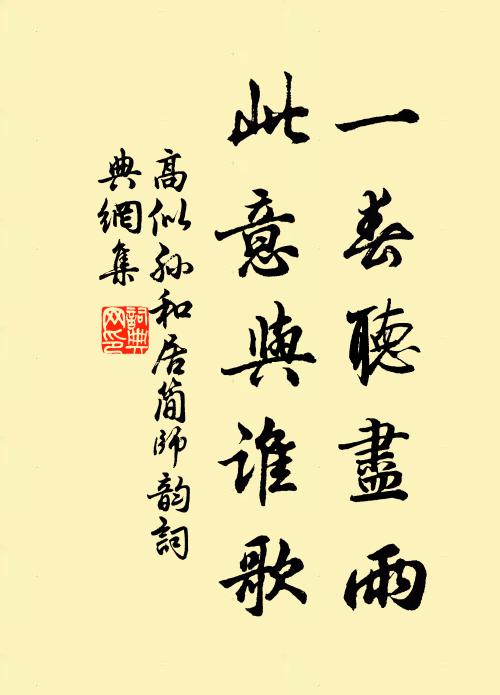 一春聽盡雨
此意與誰歌
高似孙和居簡師韵詞
典網集
詞典
网印